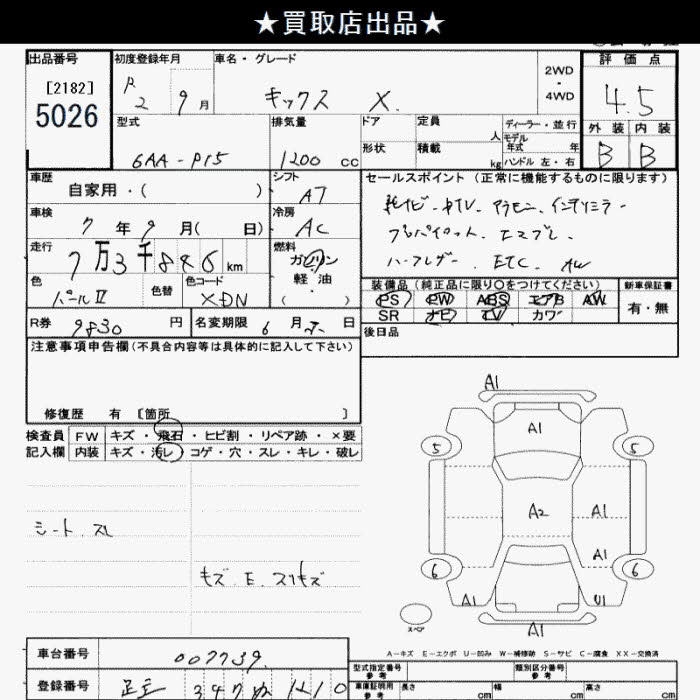 ★買取店出品★
出品番号 初度登録年月 車名・グレード 2WD・4WD 評価点
[2182]
5026
R 2 9月 キックス X. 4.5
型式 排気量 ドア 定員 人 ディーラー・並行 外装 内装
6AA-P15 1200 cc 形状 積載 kg モデル年式 年 B B
ハンドル 左・右
車歴 シフト セールスポイント(正常に機能するものに限ります)
自家用・( ) AT
車検 冷房 純ナビ・ATV. アラモニ. インテリミラー
7年9月( 日) AC プロパイロット. エマブレ.
走行 燃料 ハーフレザー. ETC. AW
7万3千846km ガソリン
軽油
( )
色 色替 色コード 装備品(純正品に限り○をつけてください) 新車保証書
パールⅡ XDN PS PW ABS エアB AW 有・無
SR ナビ TV カワ
R券 9830円 名変期限 6月 末日 後日品
注意事項申告欄(不具合内容等は具体的に記入して下さい)
修復歴 有 〔箇所 〕
検査員 FW キズ・飛石・ヒビ割・リペア跡・×要
記入欄 内装 キズ・汚レ・コゲ・穴・スレ・キレ・破レ
シート. スレ
キズ. E. スリキズ
A1
A1
5 5
A2 A1
A1
6 6
A1 U1
A1
スペア
A-キズ E-エクボ U-凹み W-補修跡 S-サビ C-腐食 XX-交換済
車台番号 007739. 型式指定番号 参考 類別区分番号 参考
登録番号 足立 車庫証明用 参考 長さ cm 幅 cm 高さ cm